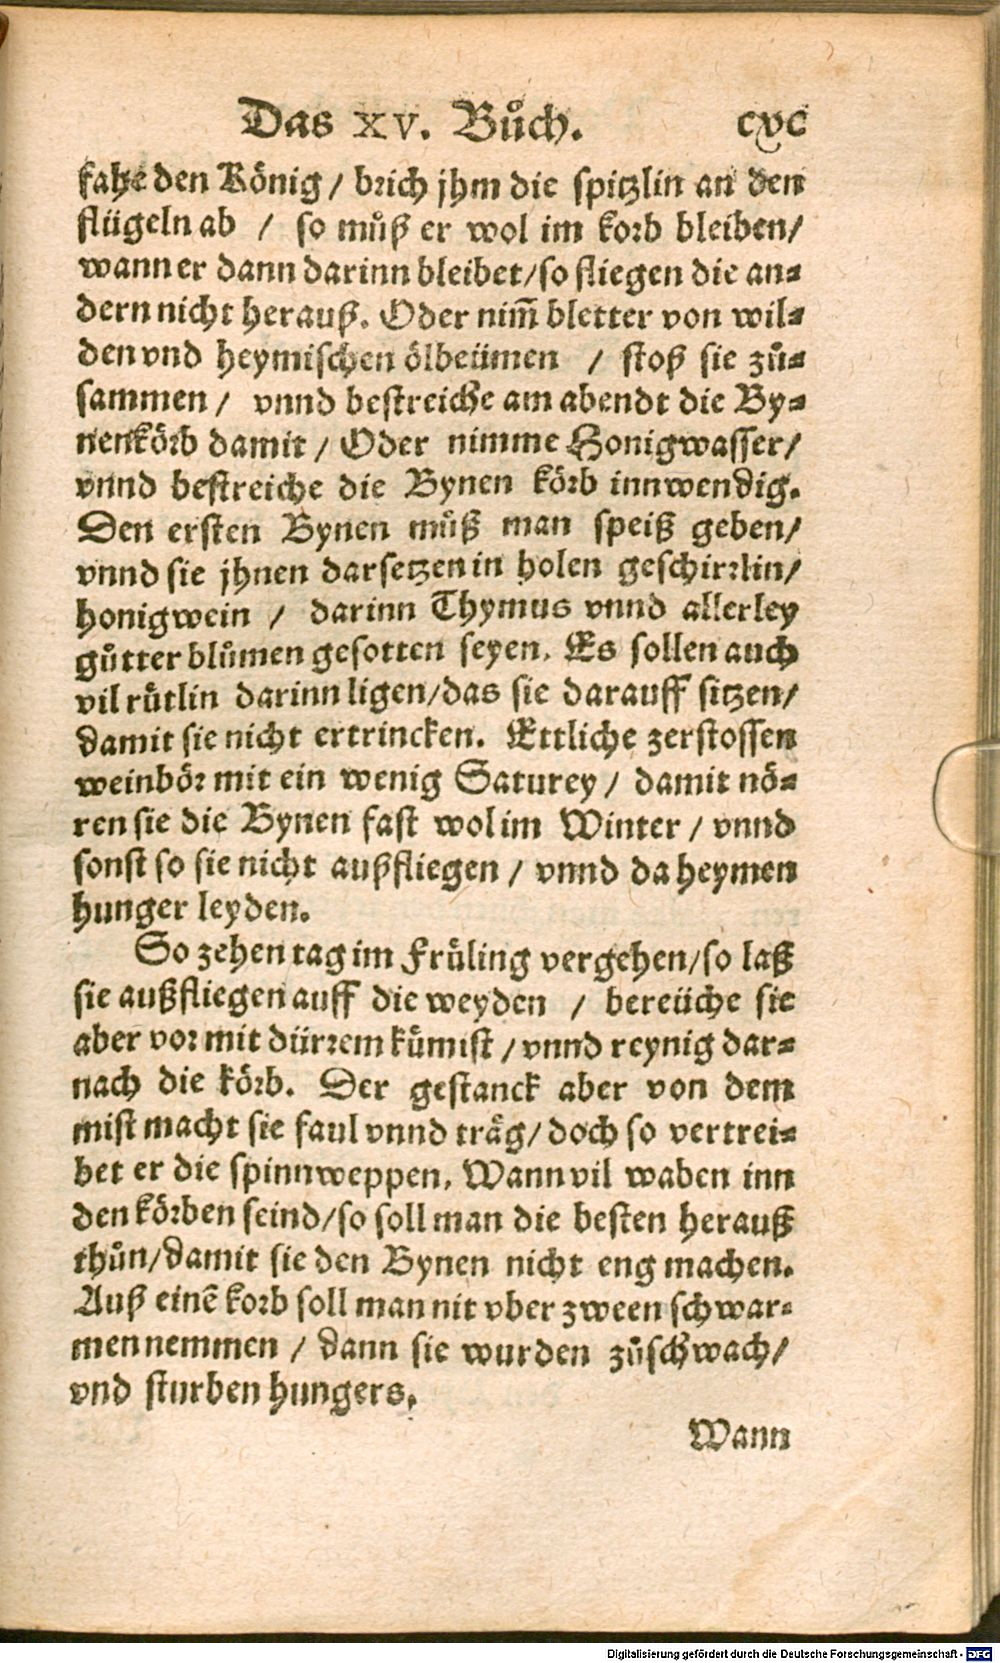 Das XV. Bůch. cxc
fahe den König / brich jhm die spitzlin an den
flügeln ab / so můß er wol im korb bleiben/
wann er dann darinn bleibet/so fliegen die an-
dern nicht herauß. Oder nim̃ bletter von wil-
den vnd heymischen ölbeümen / stoß sie zů-
sammen / vnnd bestreiche am abendt die By-
nenkörb damit / Oder nimme Honigwasser/
vnnd bestreiche die Bynen körb innwendig.
Den ersten Bynen můß man speiß geben/
vnnd sie jhnen darsetzen in holen geschirrlin/
honigwein / darinn Thymus vnnd allerley
gůtter blůmen gesotten seyen. Es sollen auch
vil růtlin darinn ligen/das sie darauff sitzen/
damit sie nicht ertrincken. Ettliche zerstossen
weinbör mit ein wenig Saturey / damit nö-
ren sie die Bynen fast wol im Winter / vnnd
sonst so sie nicht außfliegen / vnnd da heymen
hunger leyden.
So zehen tag im Früling vergehen/so laß
sie außfliegen auff die weyden / bereüche sie
aber vor mit dürrem kümist / vnnd reynig dar-
nach die körb. Der gestanck aber von dem
mist macht sie faul vnnd träg/ doch so vertrei-
bet er die spinnweppen. Wann vil waben inn
den körben seind/so soll man die besten herauß
thůn/damit sie den Bynen nicht eng machen.
Auß einē korb soll man nit vber zween schwar-
men nemmen / dann sie wurden zůschwach/
vnd sturben hungers.
Wann
Digitalisierung gefördert durch die Deutsche Forschungsgemeinschaft - DFG